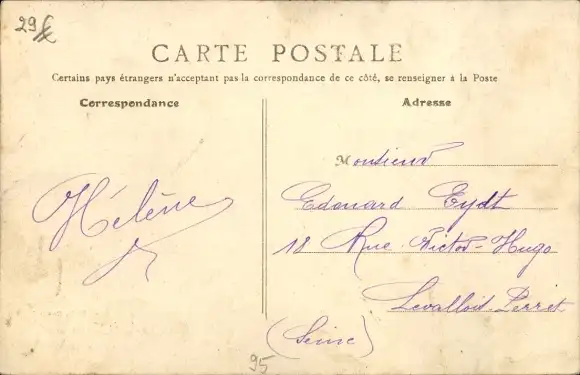 29
CARTE POSTALE
Certains pays étrangers n'acceptant pas la correspondance de ce côté, se renseigner à la Poste
Correspondance
Adresse
Hélène
Monsieur
Edouard Eydt
18 Rue Victor-Hugo
Levallois-Perret
(Seine)
95